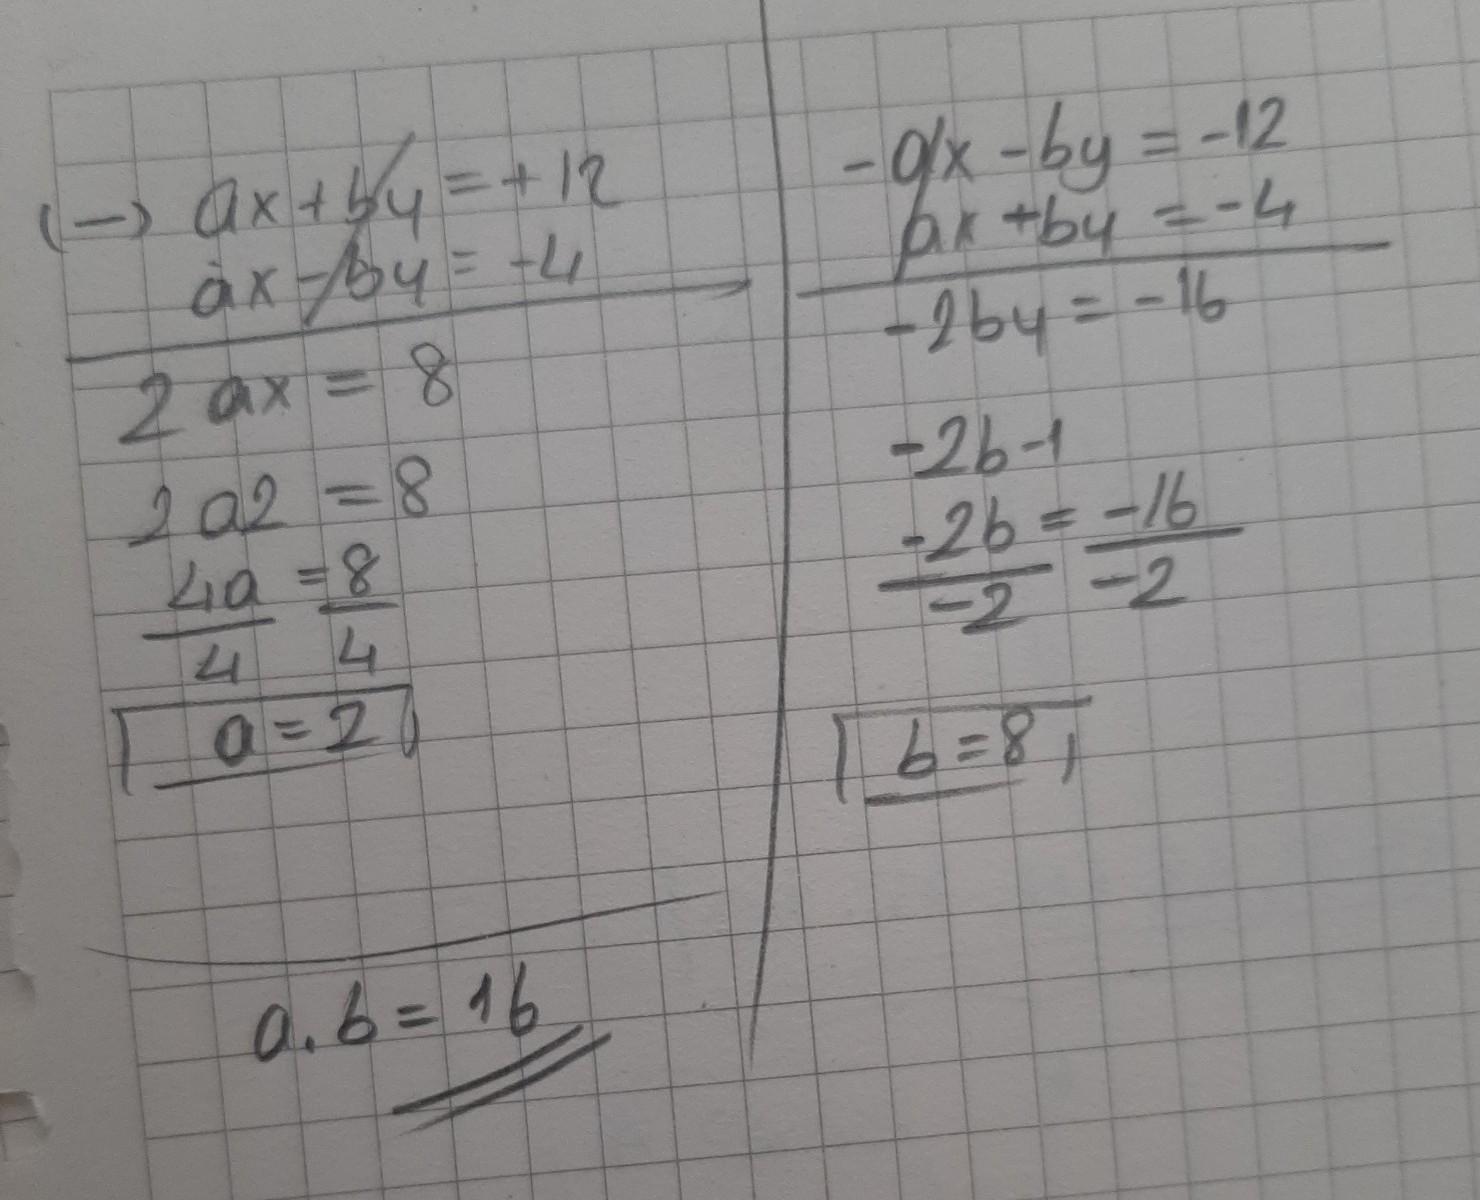 (-) ax+by=+12
ax-by=-4
2ax=8
2a2=8
4a=8
4 4
a=2
-ax-by=-12
ax+by=-4
-2by=-16
-2b-1
-2b=-16
-2 -2
b=8
a.b=16